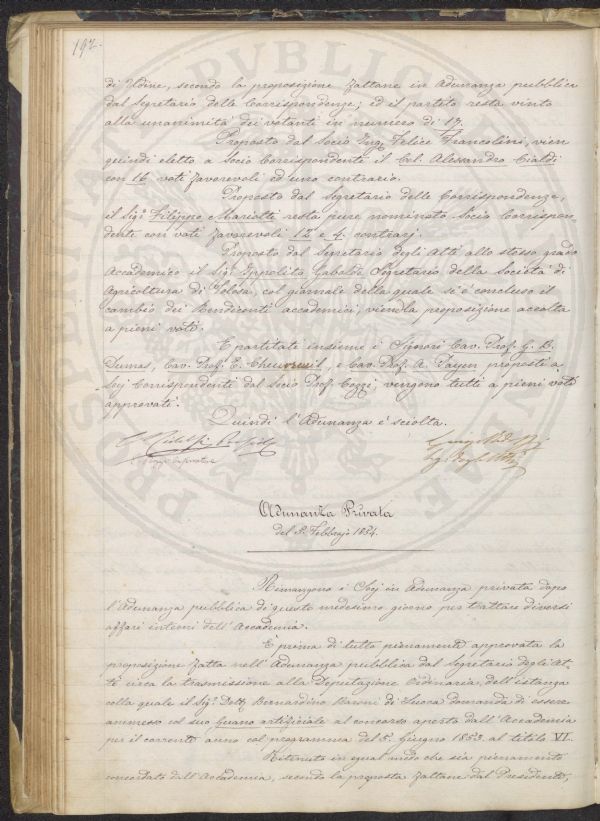 192.
di Udine, secondo la proposizione fattane in Adunanza pubblica
dal Segretario delle Corrispondenze; ed il partito resta vinto
alla unanimità dei votanti in numero di 17.
Proposto dal Socio Ing. Felice Francolini, vien
quindi eletto a Socio Corrispondente il Cav. Alessandro Cialdi
con 16 voti favorevoli ed uno contrario.
Proposto dal Segretario delle Corrispondenze,
il Sig. Filippo Mariotti resta pure nominato Socio Corrispon-
dente con voti favorevoli 12 e 4 contrarj.
Proposto dal Segretario degli Atti allo stesso grado
Accademico il Sig. Ippolito Segretario della Società di
Agricoltura di Tolosa, col giornale della quale si è concluso il
cambio dei Rendiconti accademici, vien la proposizione accolta
a pieni voti.
E partitati insieme i Signori Cav. Prof. G. B.
Dumas, Cav. Prof. E. Cheuvreuil, e Cav. Prof. A. Payen proposti a
Socj Corrispondenti dal Socio Prof. Cozzi, vengono tutti a pieni voti
approvati.
Quindi l'Adunanza è sciolta.
Adunanza Privata
del 5. Febbrajo 1854.
Rimangono i Socj in Adunanza privata dopo
l'Adunanza pubblica di questo medesimo giorno per trattare diversi
affari interni dell'Accademia.
È prima di tutto pienamente approvata la
proposizione fatta nell'Adunanza pubblica dal Segretario degli At-
ti circa la trasmissione alla Deputazione Ordinaria, dell'istanza
colla quale il Sig. Dott. Bernardino Baroni di Lucca domanda di essere
ammesso col suo Guano artificiale al concorso aperto dall'Accademia
per il corrente anno col programma del 5. Giugno 1853 al titolo VI.
Ritenuto in egual modo che sia pienamente
concordato dall'Accademia, secondo la proposta fattane dal Presidente,
PVBLICAE
PROSPERITATI